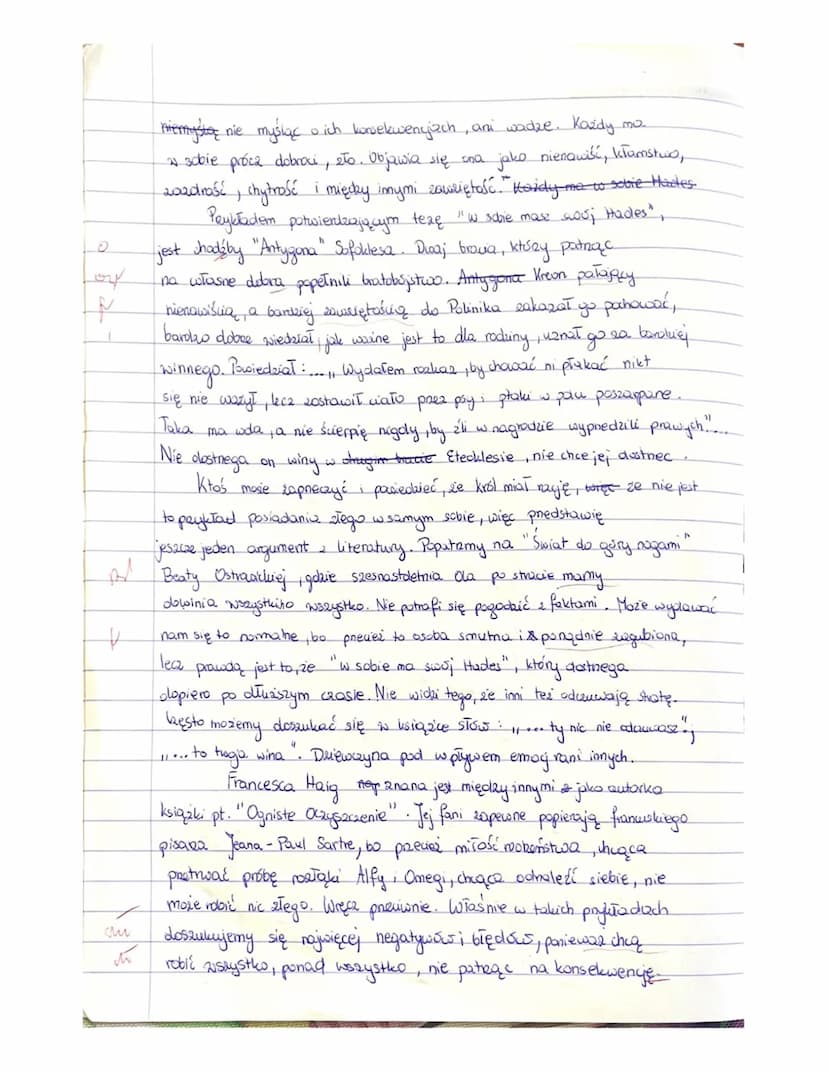 niemyślą nie myśląc o ich konsekwencjach, ani wadze. Każdy ma
w sobie prócz dobroci, zło. Objawia się ona jako nienawiść, kłamstwo,
zazdrość, chytrość i między innymi zawziętość." Każdy ma w sobie Hades.
Przykładem potwierdzającym tezę "W sobie masz swój Hades",
jest chodźby "Antygona" Sofoklesa. Dwaj bracia, którzy patrząc
na własne dobra popełnili bratobójstwo. Antygona Kreon pałający
nienawiścią, a bardziej zawziętością do Polinika zakazał go pochować,
bardzo dobrze wiedział, jak ważne jest to dla rodziny, uznał go za bardziej
winnego. Powiedział: ... „Wydałem rozkaz, by chować ni płakać nikt
się nie ważył, lecz zostawił ciało przez psy i ptaki w polu poszarpane.
Taka ma wola, a nie ścierpię nigdy, by źli w nagrodzie wyprzedzili prawych"...
Nie dostrzega on winy w drugim bracie Eteoklesie, nie chce jej dostrzec.
Ktoś może zaprzeczyć i powiedzieć, że król miał rację, więc że nie jest
to przykład posiadania złego w samym sobie, więc przedstawię
jeszcze jeden argument z literatury. Popatrzmy na "Świat do góry nogami"
Beaty Ostrowickiej, gdzie szesnastoletnia Ola po stracie mamy
obwinia wszystko. Nie potrafi się pogodzić z faktami. Może wydawać
nam się to normalne, bo przecież to osoba smutna i porządnie zagubiona,
lecz prawdą jest to, że "w sobie ma swój Hades", który dostrzega
dopiero po dłuższym czasie. Nie widzi tego, że inni też odczuwają stratę.
Często możemy doszukać się w książce słów: „... ty nic nie odczuwasz",
„... to twoja wina". Dziewczyna pod wpływem emocji rani innych.
Francesca Haig znana jest między innymi jako autorka
książki pt. "Ogniste Oczyszczenie". Jej fani zapewne popierają francuskiego
pisarza Jeana-Paul Sartre, bo przecież miłość rodzeństwa, chcąca
przetrwać próbę rozłąki Alfy i Omegi, chcąca odnaleźć siebie, nie
może robić nic złego. Wręcz przeciwnie. Właśnie w takich przykładach
doszukujemy się najwięcej negatywów i błędów, ponieważ chcą
robić wszystko, ponad wszystko, nie patrząc na konsekwencję.